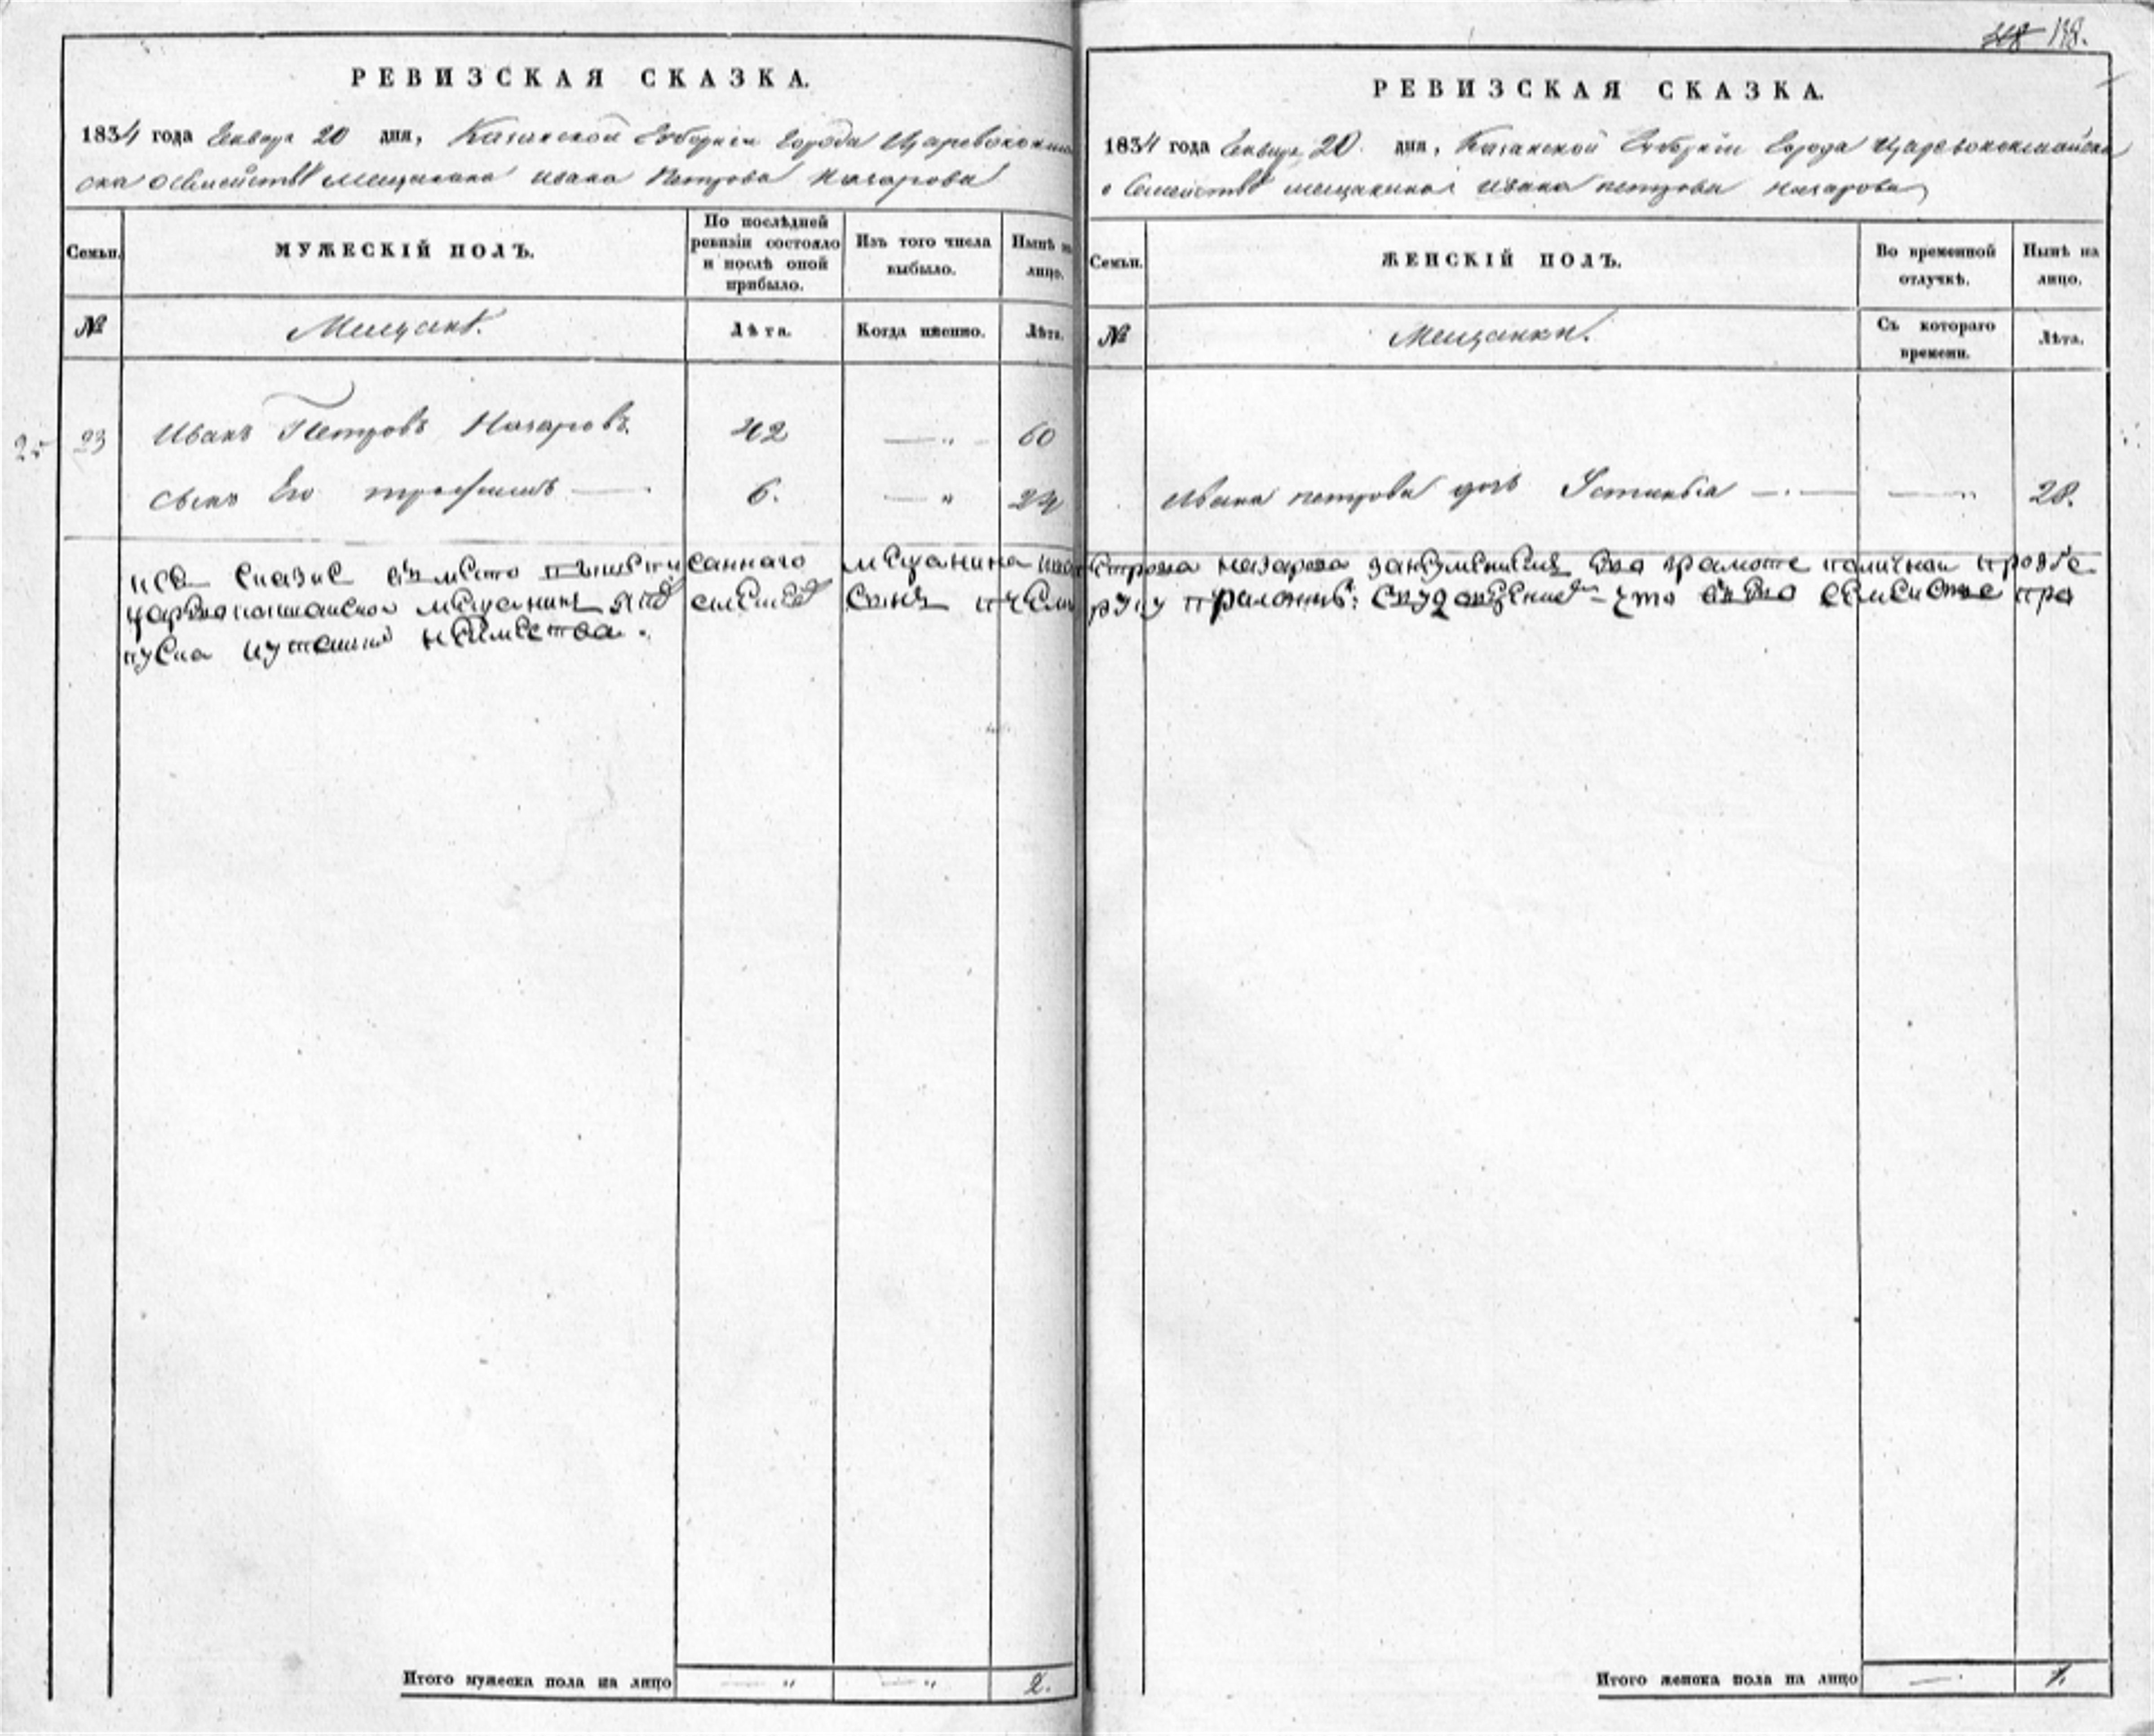 118 118.
РЕВИЗСКАЯ СКАЗКА.
1834 года Генваря 20 дня, Казанской Губернии Города Царевококшай
ска о Семействѣ мещанина Ивана Петрова Назарова
Семьи.
МУЖЕСКІЙ ПОЛЪ.
По послѣдней ревизіи состояло и послѣ оной прибыло.
Изъ того числа выбыло.
Нынѣ на лицо.
№
Мещане.
Лѣта.
Когда именно.
Лѣта.
25 23 Иванъ Петровъ Назаровъ. 42 — „ — 60
Сынъ Его трофимъ — 6. — „ 24
сказке вместо саннаго мещанина
царевококшайской мещанинъ сынъ
пуска и утайки неимеетса.
Итого мужеска пола на лицо — „ — „ 2.
РЕВИЗСКАЯ СКАЗКА.
1834 года Генваря 20 дня, Казанской Губерніи Города Царевококшайска
о Семействѣ мещанина Ивана петрова Назарова
Семьи.
ЖЕНСКІЙ ПОЛЪ.
Во временной отлучкѣ.
Нынѣ на лицо.
№
Мещанки.
Съ котораго времени.
Лѣта.
Ивана петрова дочь Устинья — — „ 28.
петрова назарова грамоте поличнои прозбе
руку приложилъ: что семеистве про
Итого женска пола на лицо — 1.